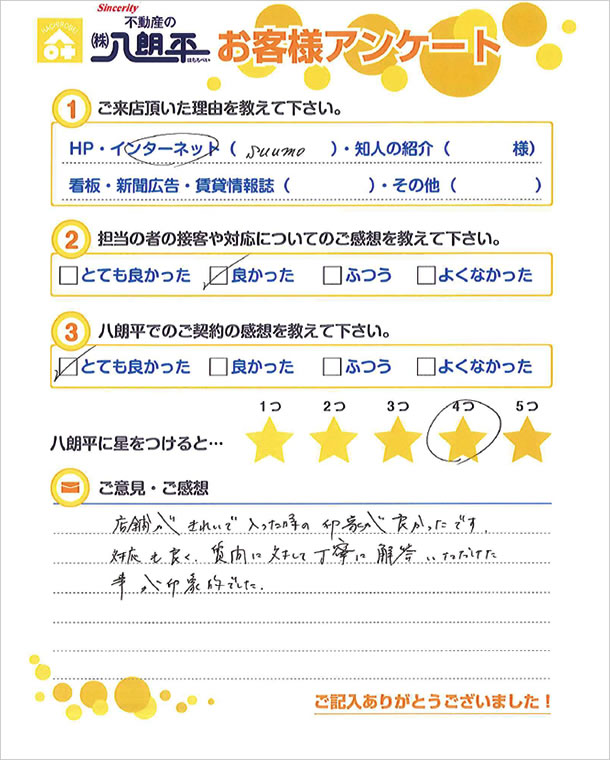 Sincerity
不動産の
(株)八朗平
はちろべい
お客様アンケート
1 ご来店頂いた理由を教えて下さい。
HP・インターネット( suumo )・知人の紹介( 様)
看板・新聞広告・賃貸情報誌( )・その他( )
2 担当の者の接客や対応についてのご感想を教えて下さい。
□とても良かった □良かった □ふつう □よくなかった
3 八朗平でのご契約の感想を教えて下さい。
□とても良かった □良かった □ふつう □よくなかった
1つ 2つ 3つ 4つ 5つ
八朗平に星をつけると…
ご意見・ご感想
店舗がきれいで入った時の印象が良かったです.
対応も良く、質問に対して丁寧に解答いただけた
事が印象的でした.
ご記入ありがとうございました!